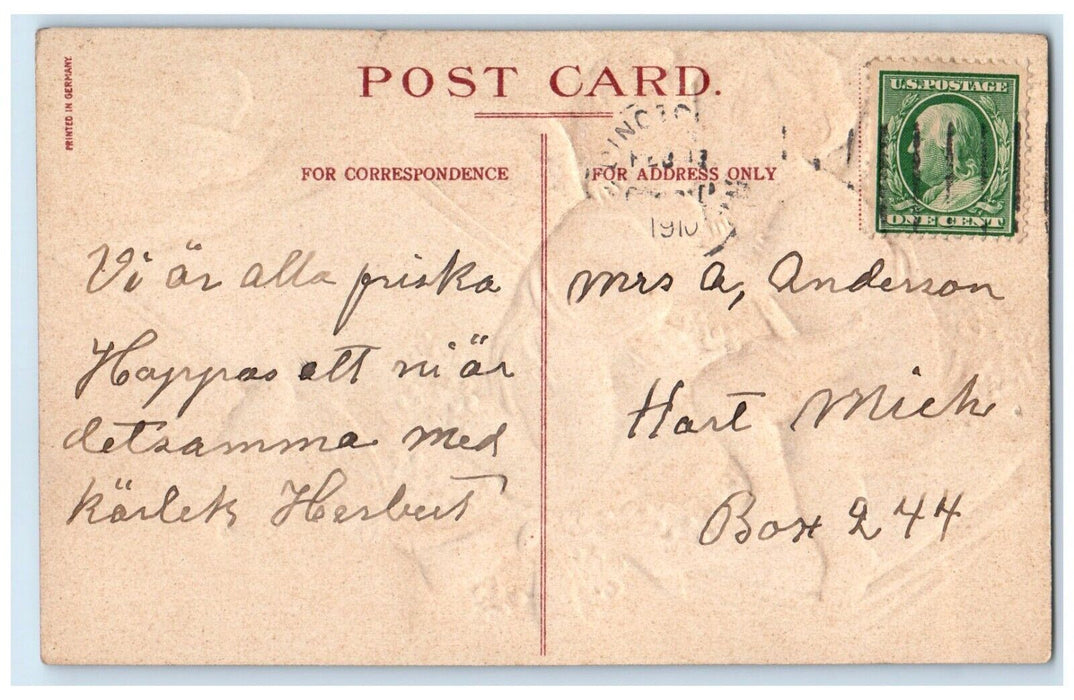 PRINTED IN GERMANY.
POST CARD.
FOR CORRESPONDENCE
FOR ADDRESS ONLY
U.S. POSTAGE
ONE CENT
FEB
1910
Vi är alla friska
Hoppas att ni är
detsamma med
kärlek Herbert
Mrs A, Anderson
Hart Mich
Box 244